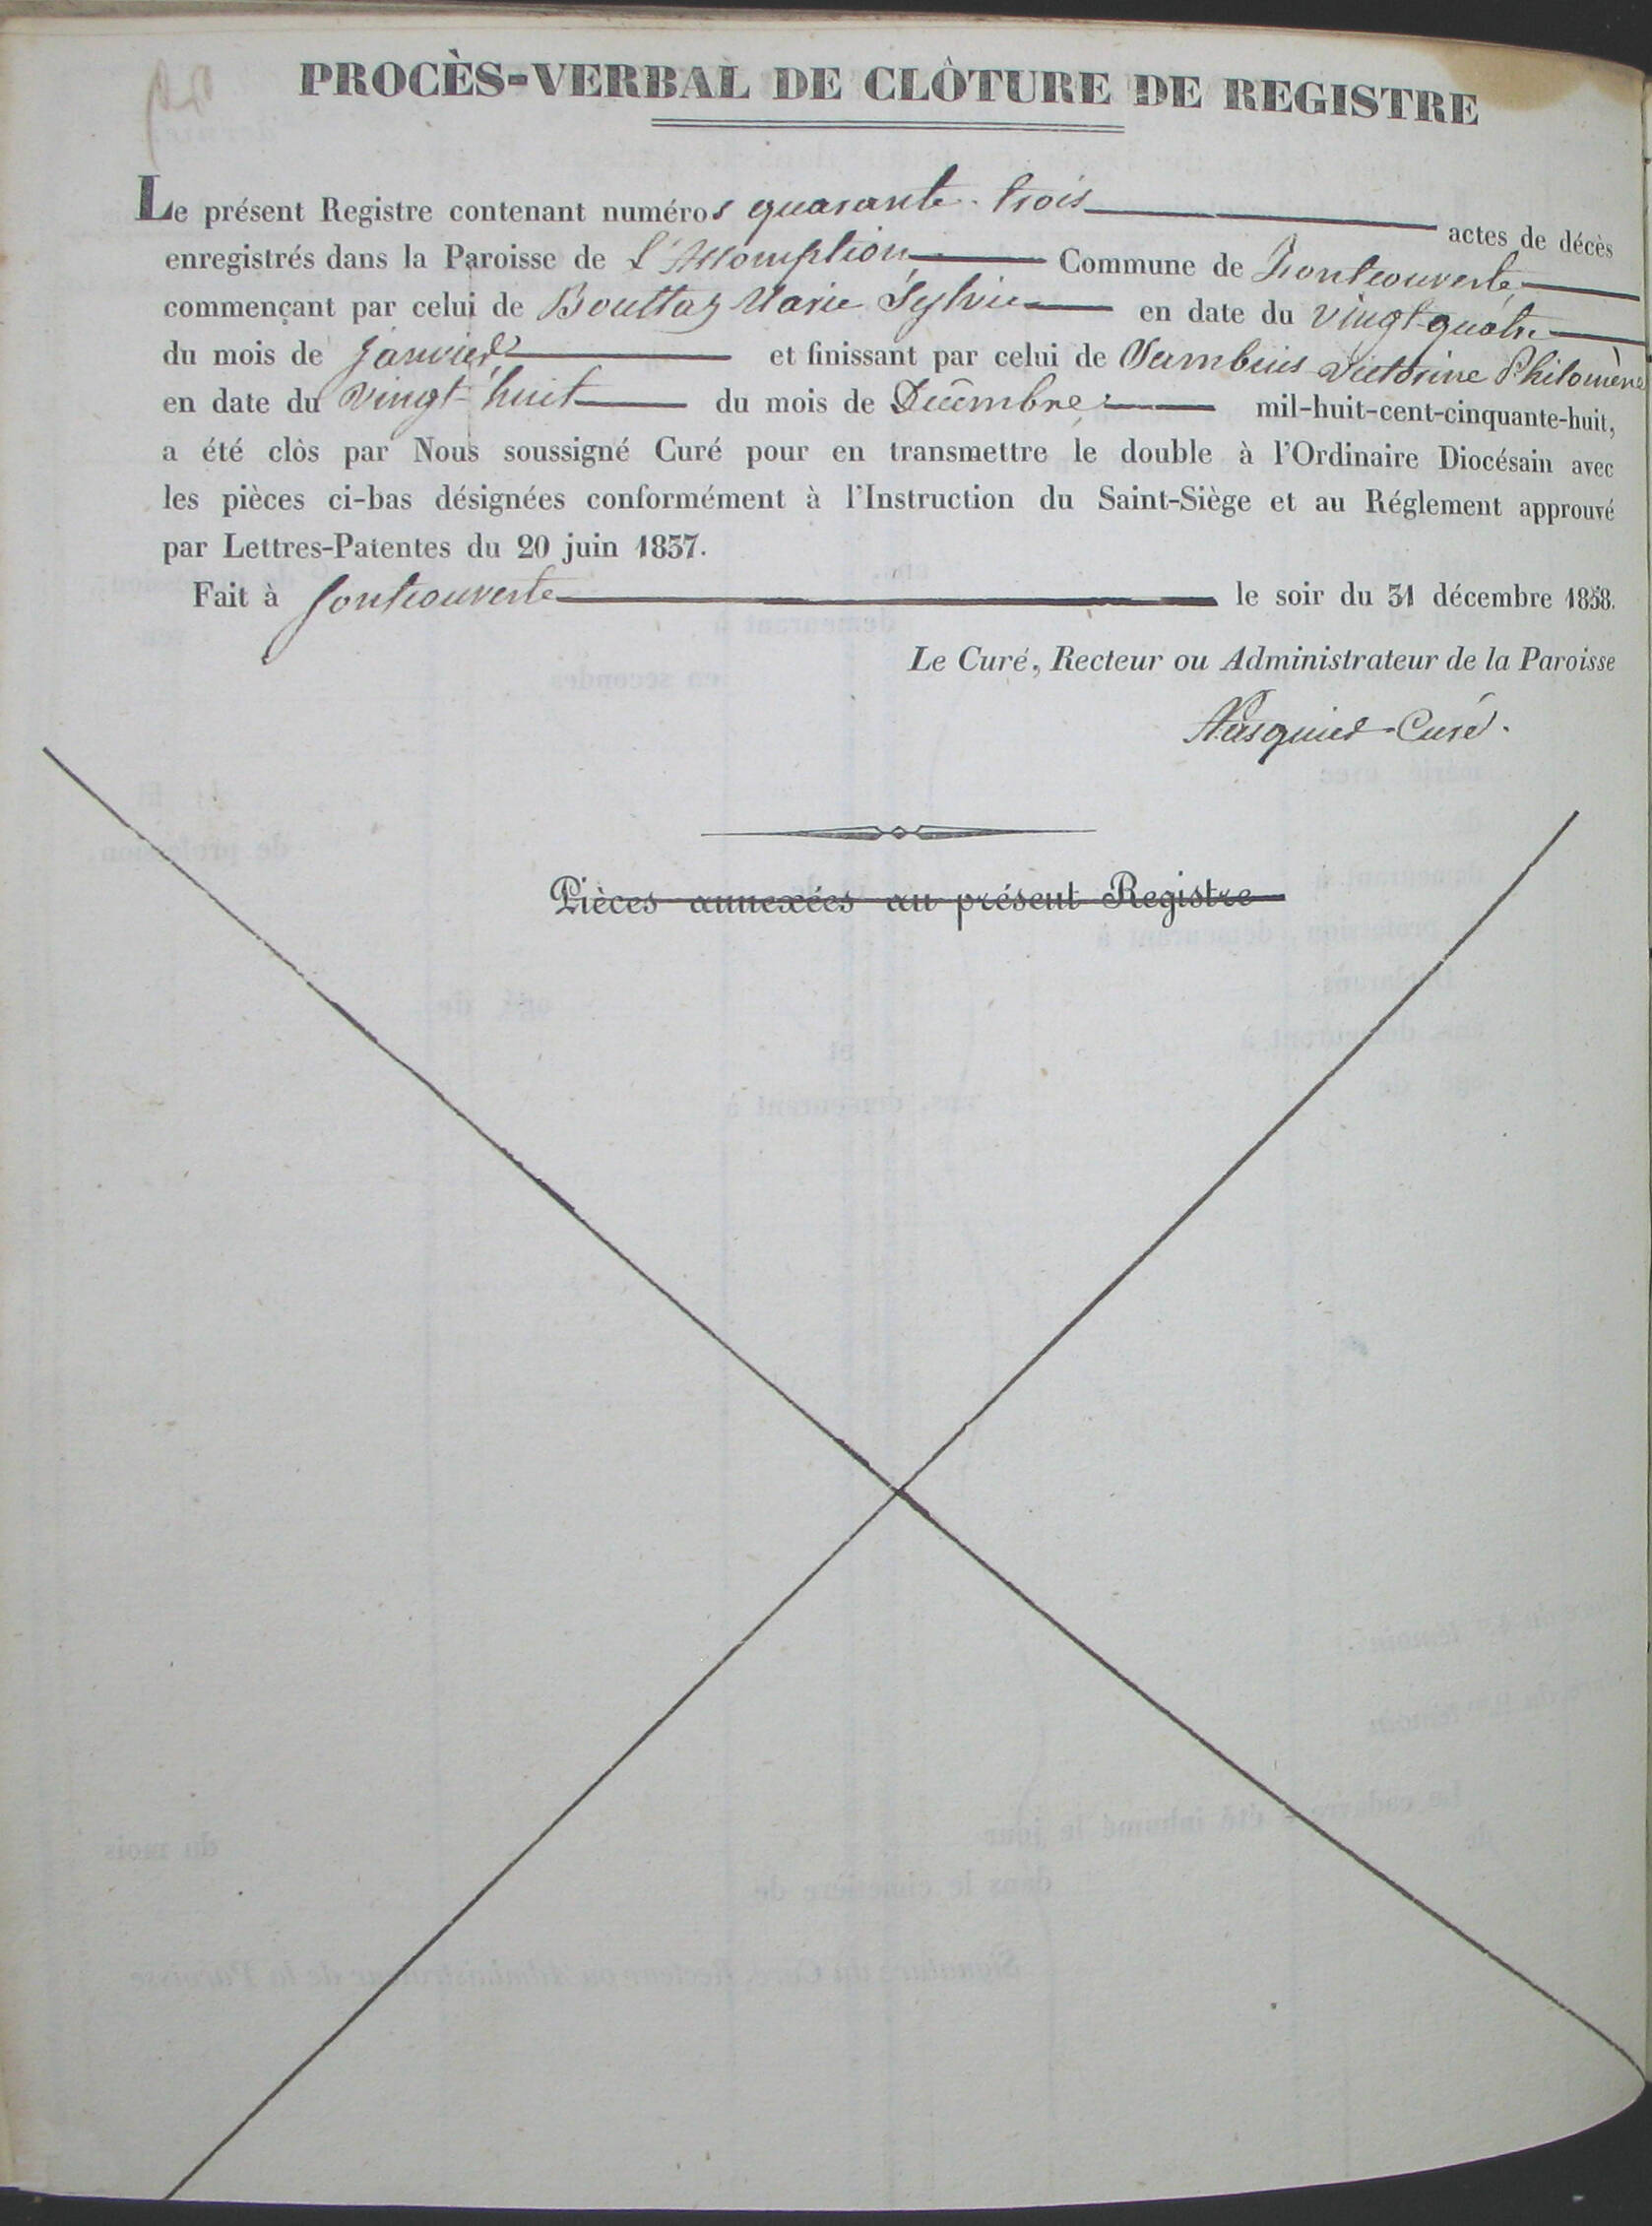 PROCÈS-VERBAL DE CLÔTURE DE REGISTRE
Le présent Registre contenant numéros quarante-trois actes de décès
enregistrés dans la Paroisse de L'Assomption Commune de Fontcouverte
commençant par celui de Bouttaz Marie Sylvie en date du vingt-quatre
du mois de janvier et finissant par celui de Sambuis Victorine Philomène
en date du vingt-huit du mois de Décembre mil-huit-cent-cinquante-huit,
a été clòs par Nous soussigné Curé pour en transmettre le double à l'Ordinaire Diocésain avec
les pièces ci-bas désignées conformément à l'Instruction du Saint-Siège et au Réglement approuvé
par Lettres-Patentes du 20 juin 1837.
Fait à fontcouverte le soir du 31 décembre 1858.
Le Curé, Recteur ou Administrateur de la Paroisse
Curé.
Pièces annexées au présent Registre